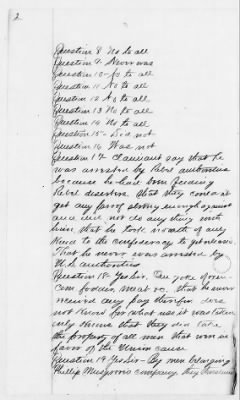 2
Question 8 No to all
Question 9 Never was
Question 10 - No to all
Question 11 No to all
Question 12 No to all
Question 13 No to all
Question 14 No to all
Question 15 - Did not
Question 16 Was not
Question 17 Claimant say that he
was arrested by Rebel authorities
because he had been feeding
Rebel deserters that they could not
get any proof strong enough against
and did not do any thing with
him, that he took no oath of any
kind to the confederacy to get
That he never was arrested by
U.S. authorities
Question 18 - Yes Sir. One yoke of oxen
corn fodder, meat &c. that he never
received any pay therefor does
not know for what use it was taken
only that they did take
the property of all men that were in
favor of the Union cause
Question 19 Yes Sir - By men belonging
Phillip company they threatened